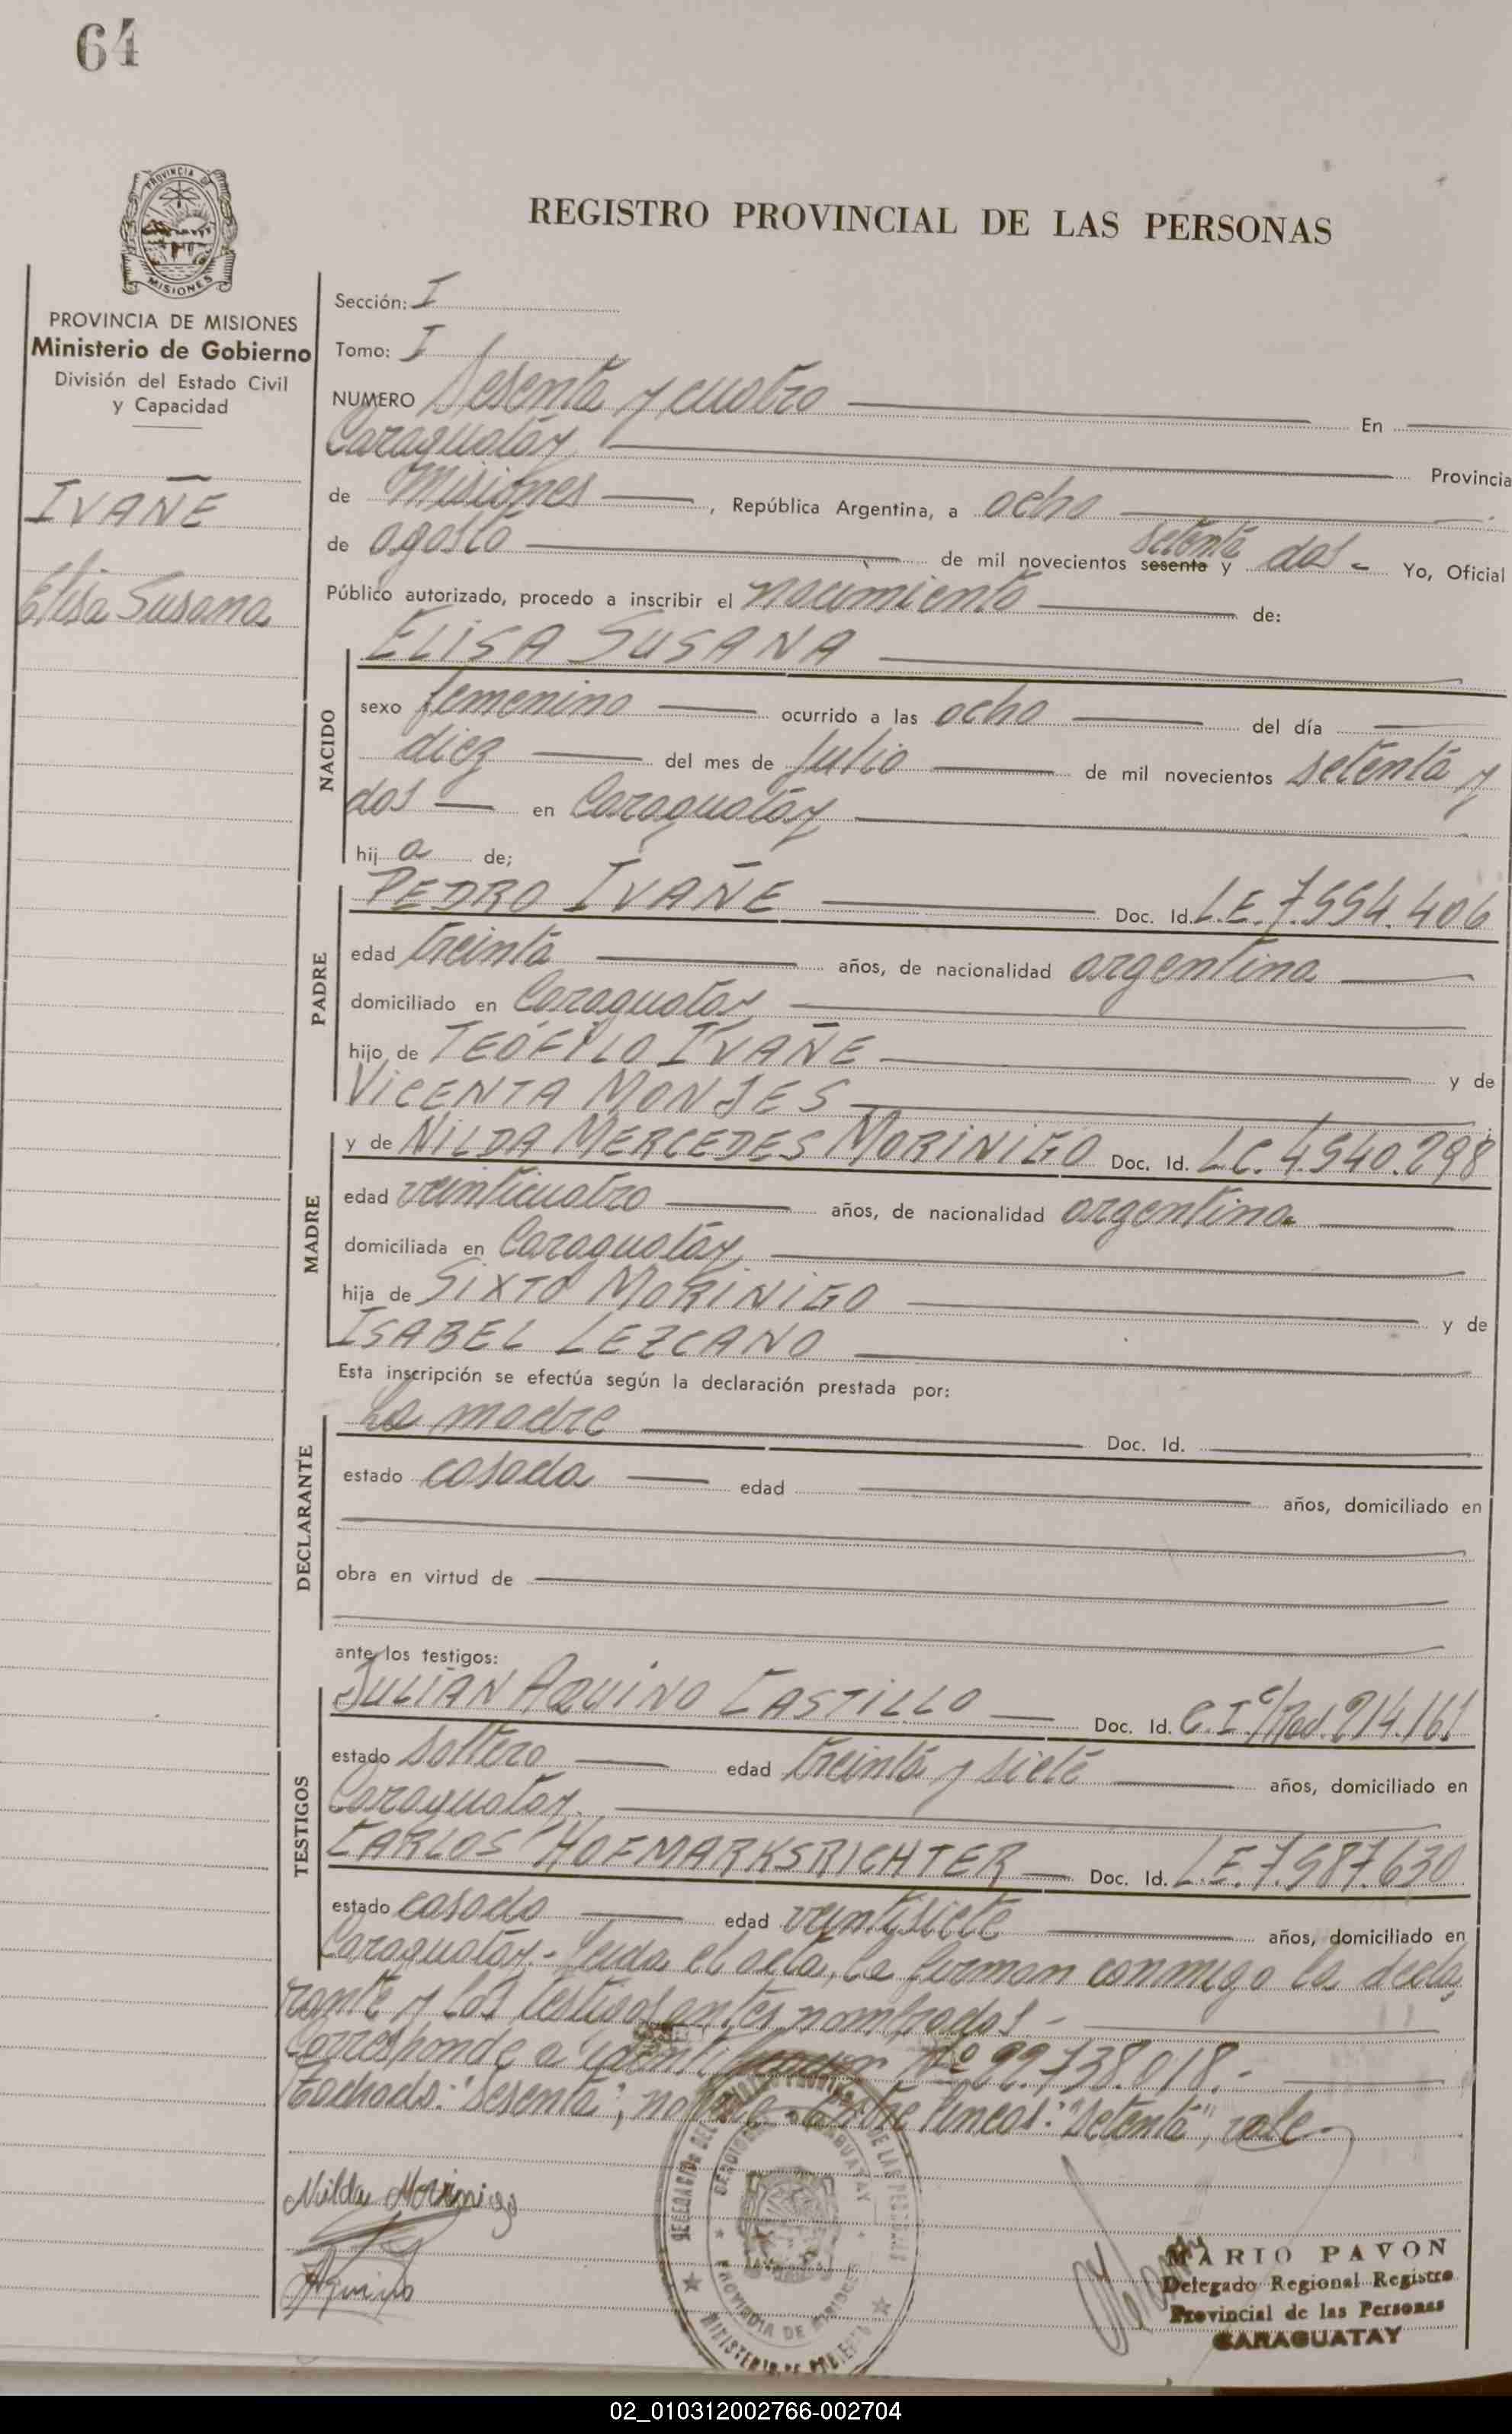 64
PROVINCIA DE
MISIONES
REGISTRO PROVINCIAL DE LAS PERSONAS
PROVINCIA DE MISIONES
Ministerio de Gobierno
División del Estado Civil
y Capacidad
IVAÑE
Elisa Susana
Sección: I
Tomo: I
NUMERO Sesenta y cuatro En
Caraguatáy Provincia
de Misiones, República Argentina, a ocho
de agosto de mil novecientos sesenta setenta y dos Yo, Oficial
Público autorizado, procedo a inscribir el nacimiento de:
NACIDO
ELISA SUSANA
sexo femenino ocurrido a las ocho del día
diez del mes de Julio de mil novecientos setenta y
dos en Caraguatáy
hij a de;
PADRE
PEDRO IVAÑE Doc. Id. L.E. 7.554.406
edad treinta años, de nacionalidad argentina
domiciliado en Caraguatay
hijo de TEÓFILO IVAÑE y de
VICENTA MONJES
MADRE
y de NILDA MERCEDES MORINIGO Doc. Id. L.C. 4.540.298
edad veinticuatro años, de nacionalidad argentina
domiciliada en Caraguatáy
hija de SIXTO MORINIGO y de
ISABEL LEZCANO
Esta inscripción se efectúa según la declaración prestada por:
DECLARANTE
La madre Doc. Id.
estado casada edad años, domiciliado en
obra en virtud de
ante los testigos:
TESTIGOS
JULIÁN AQUINO CASTILLO Doc. Id. C.I. 214.161
estado soltero edad treinta y siete años, domiciliado en
Caraguatay.
CARLOS HOFMARKSRICHTER Doc. Id. L.E. 7.587.630
estado casado edad veintisiete años, domiciliado en
Caraguatáy.- Leída el acta, la firman conmigo la decla
rante y los testigos antes nombrados.-
Corresponde a identificación Nº 22.738.018.-
Tachado: "Sesenta"; no vale.- Entre líneas: "setenta", vale.
Nilda Morinigo
Aquino
MARIO PAVON
Delegado Regional Registro
Provincial de las Personas
CARAGUATAY
02_010312002766-002704